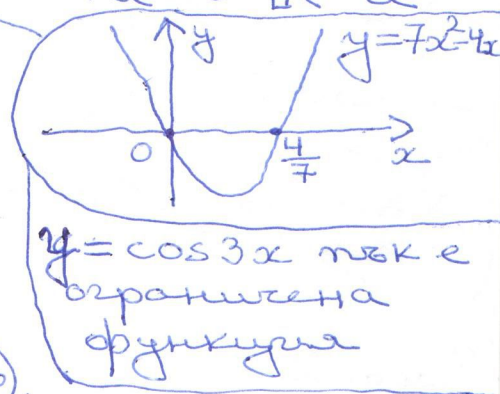 y
y=7x²-4x
0
4/7
x
y=cos3x пък е
ограничена
функция